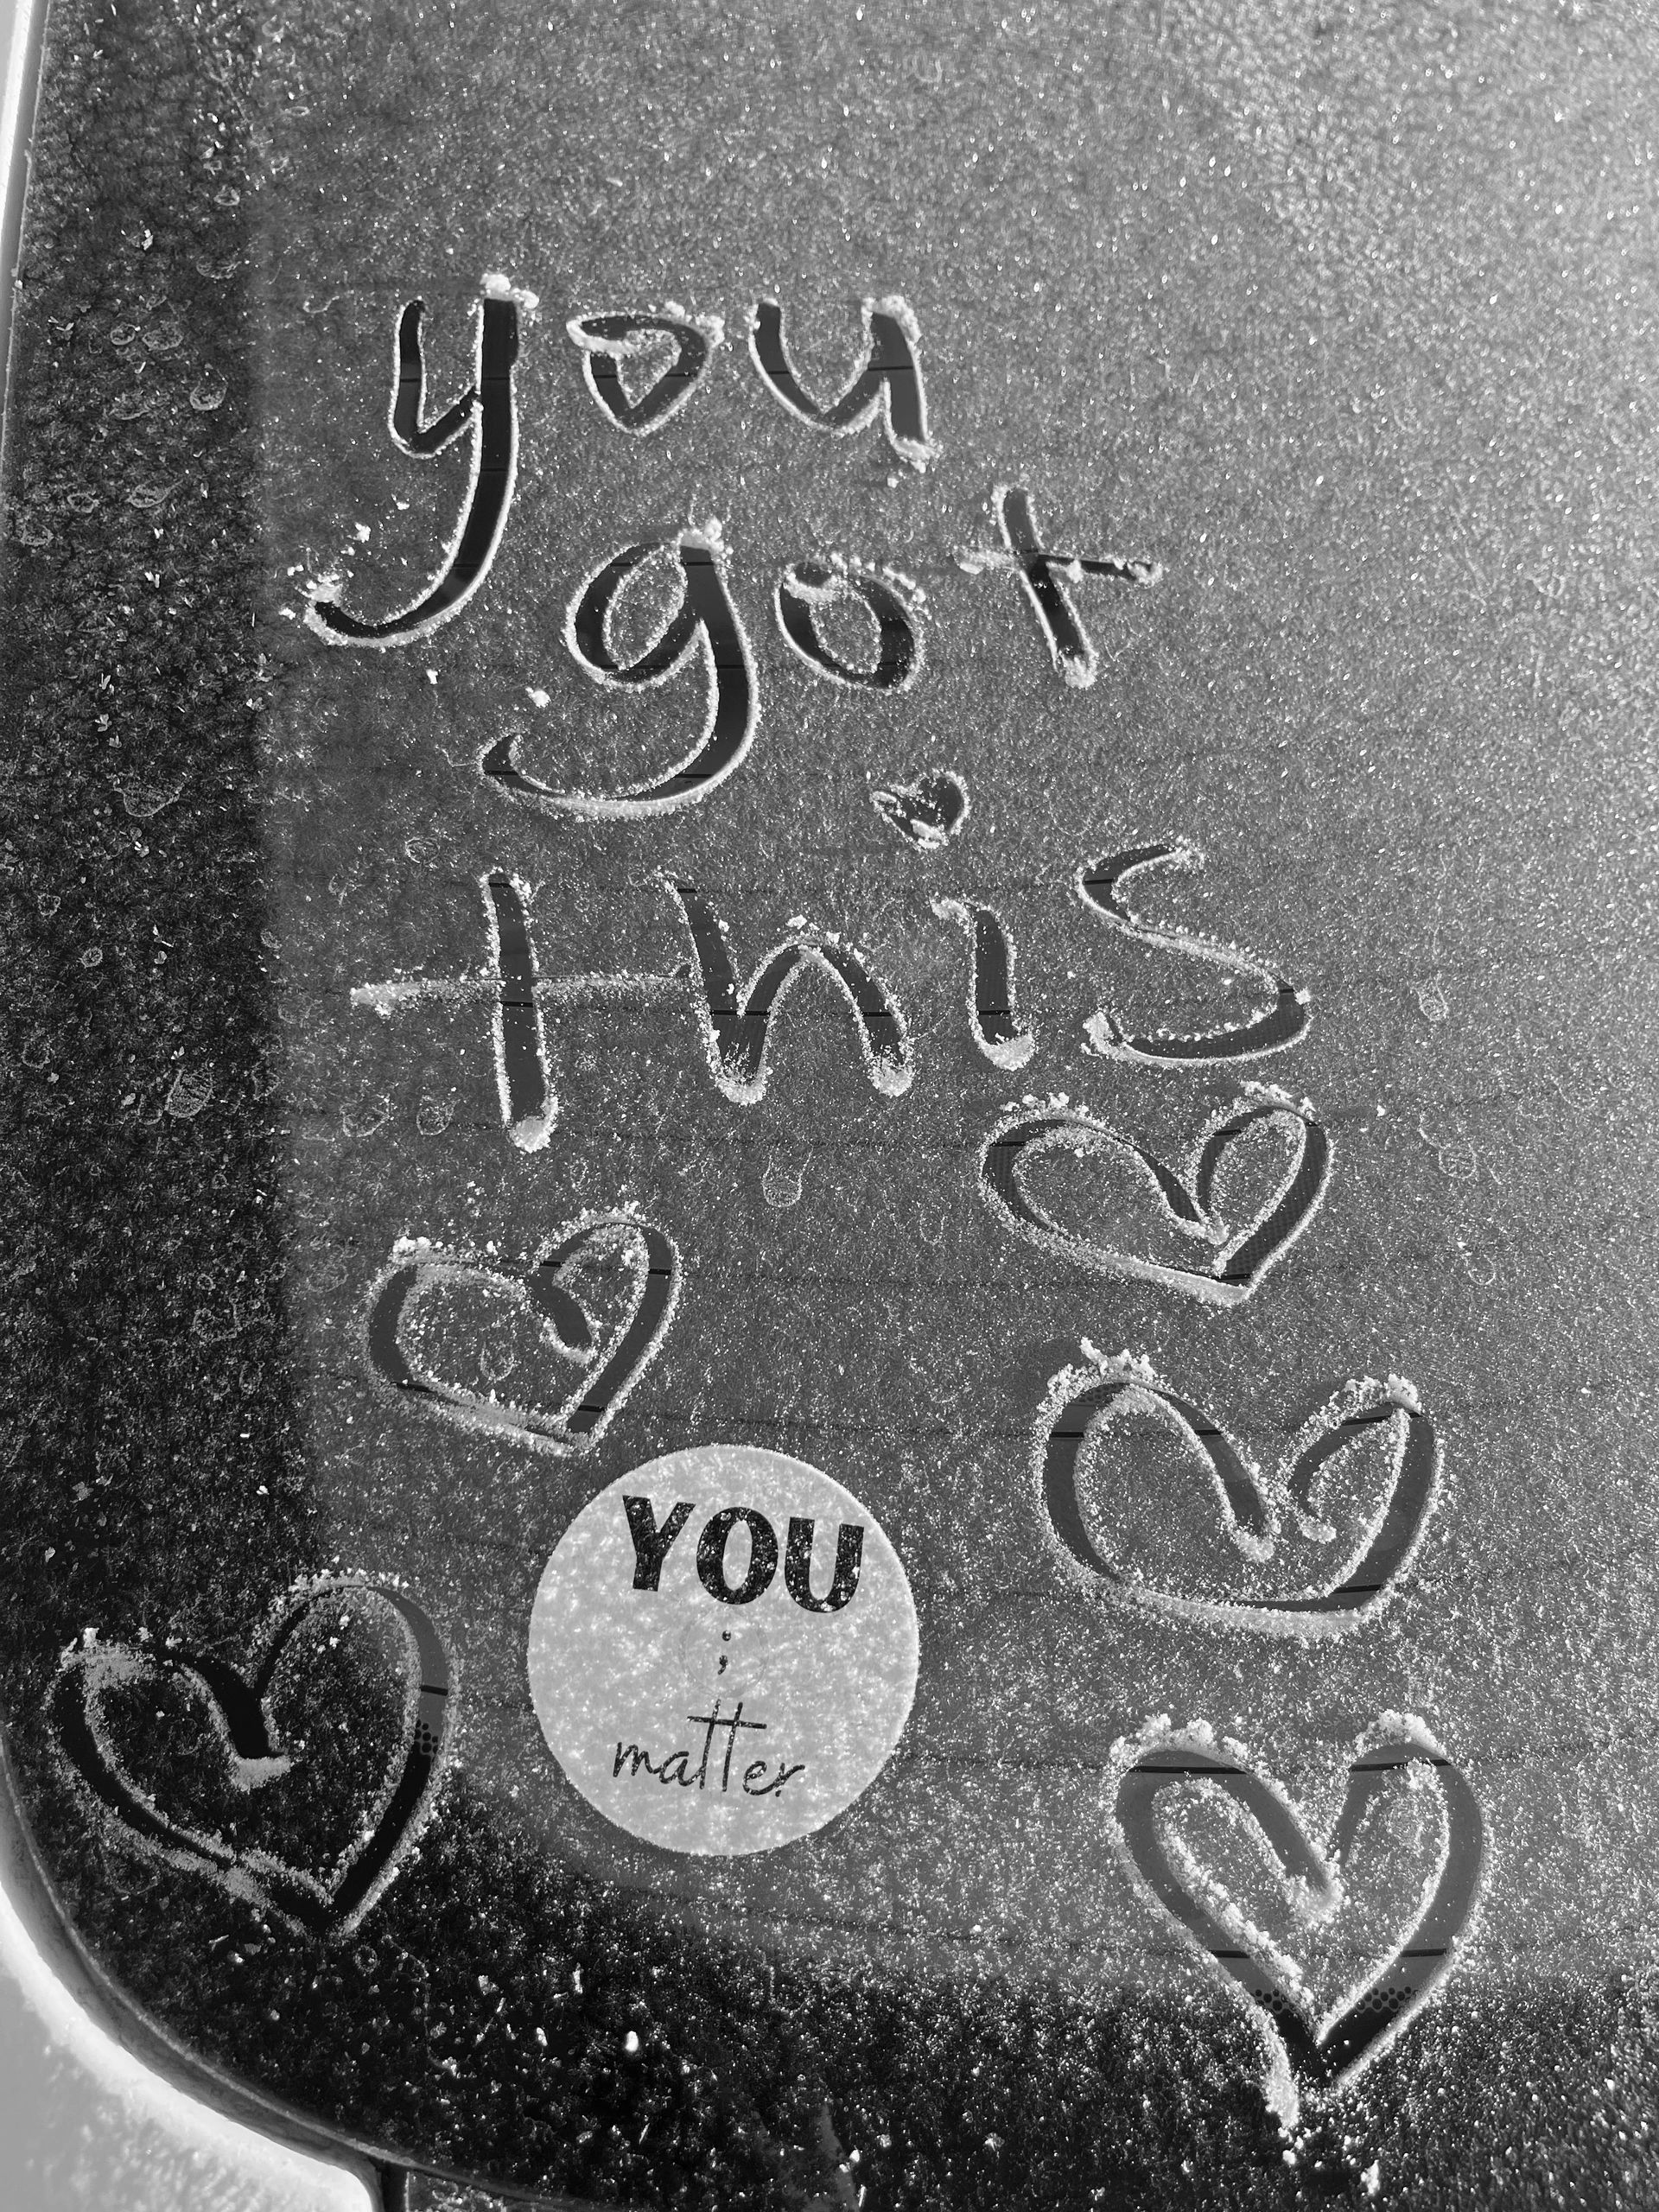 you
got
this
YOU
;
matter